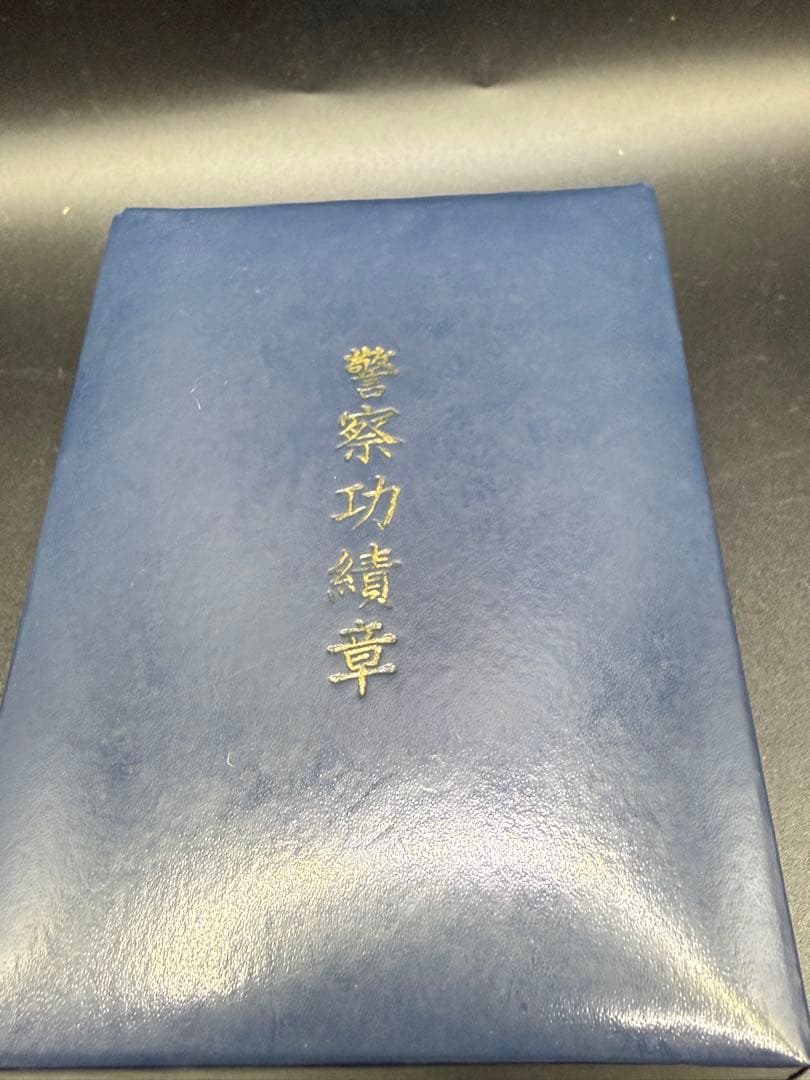 警察功績章